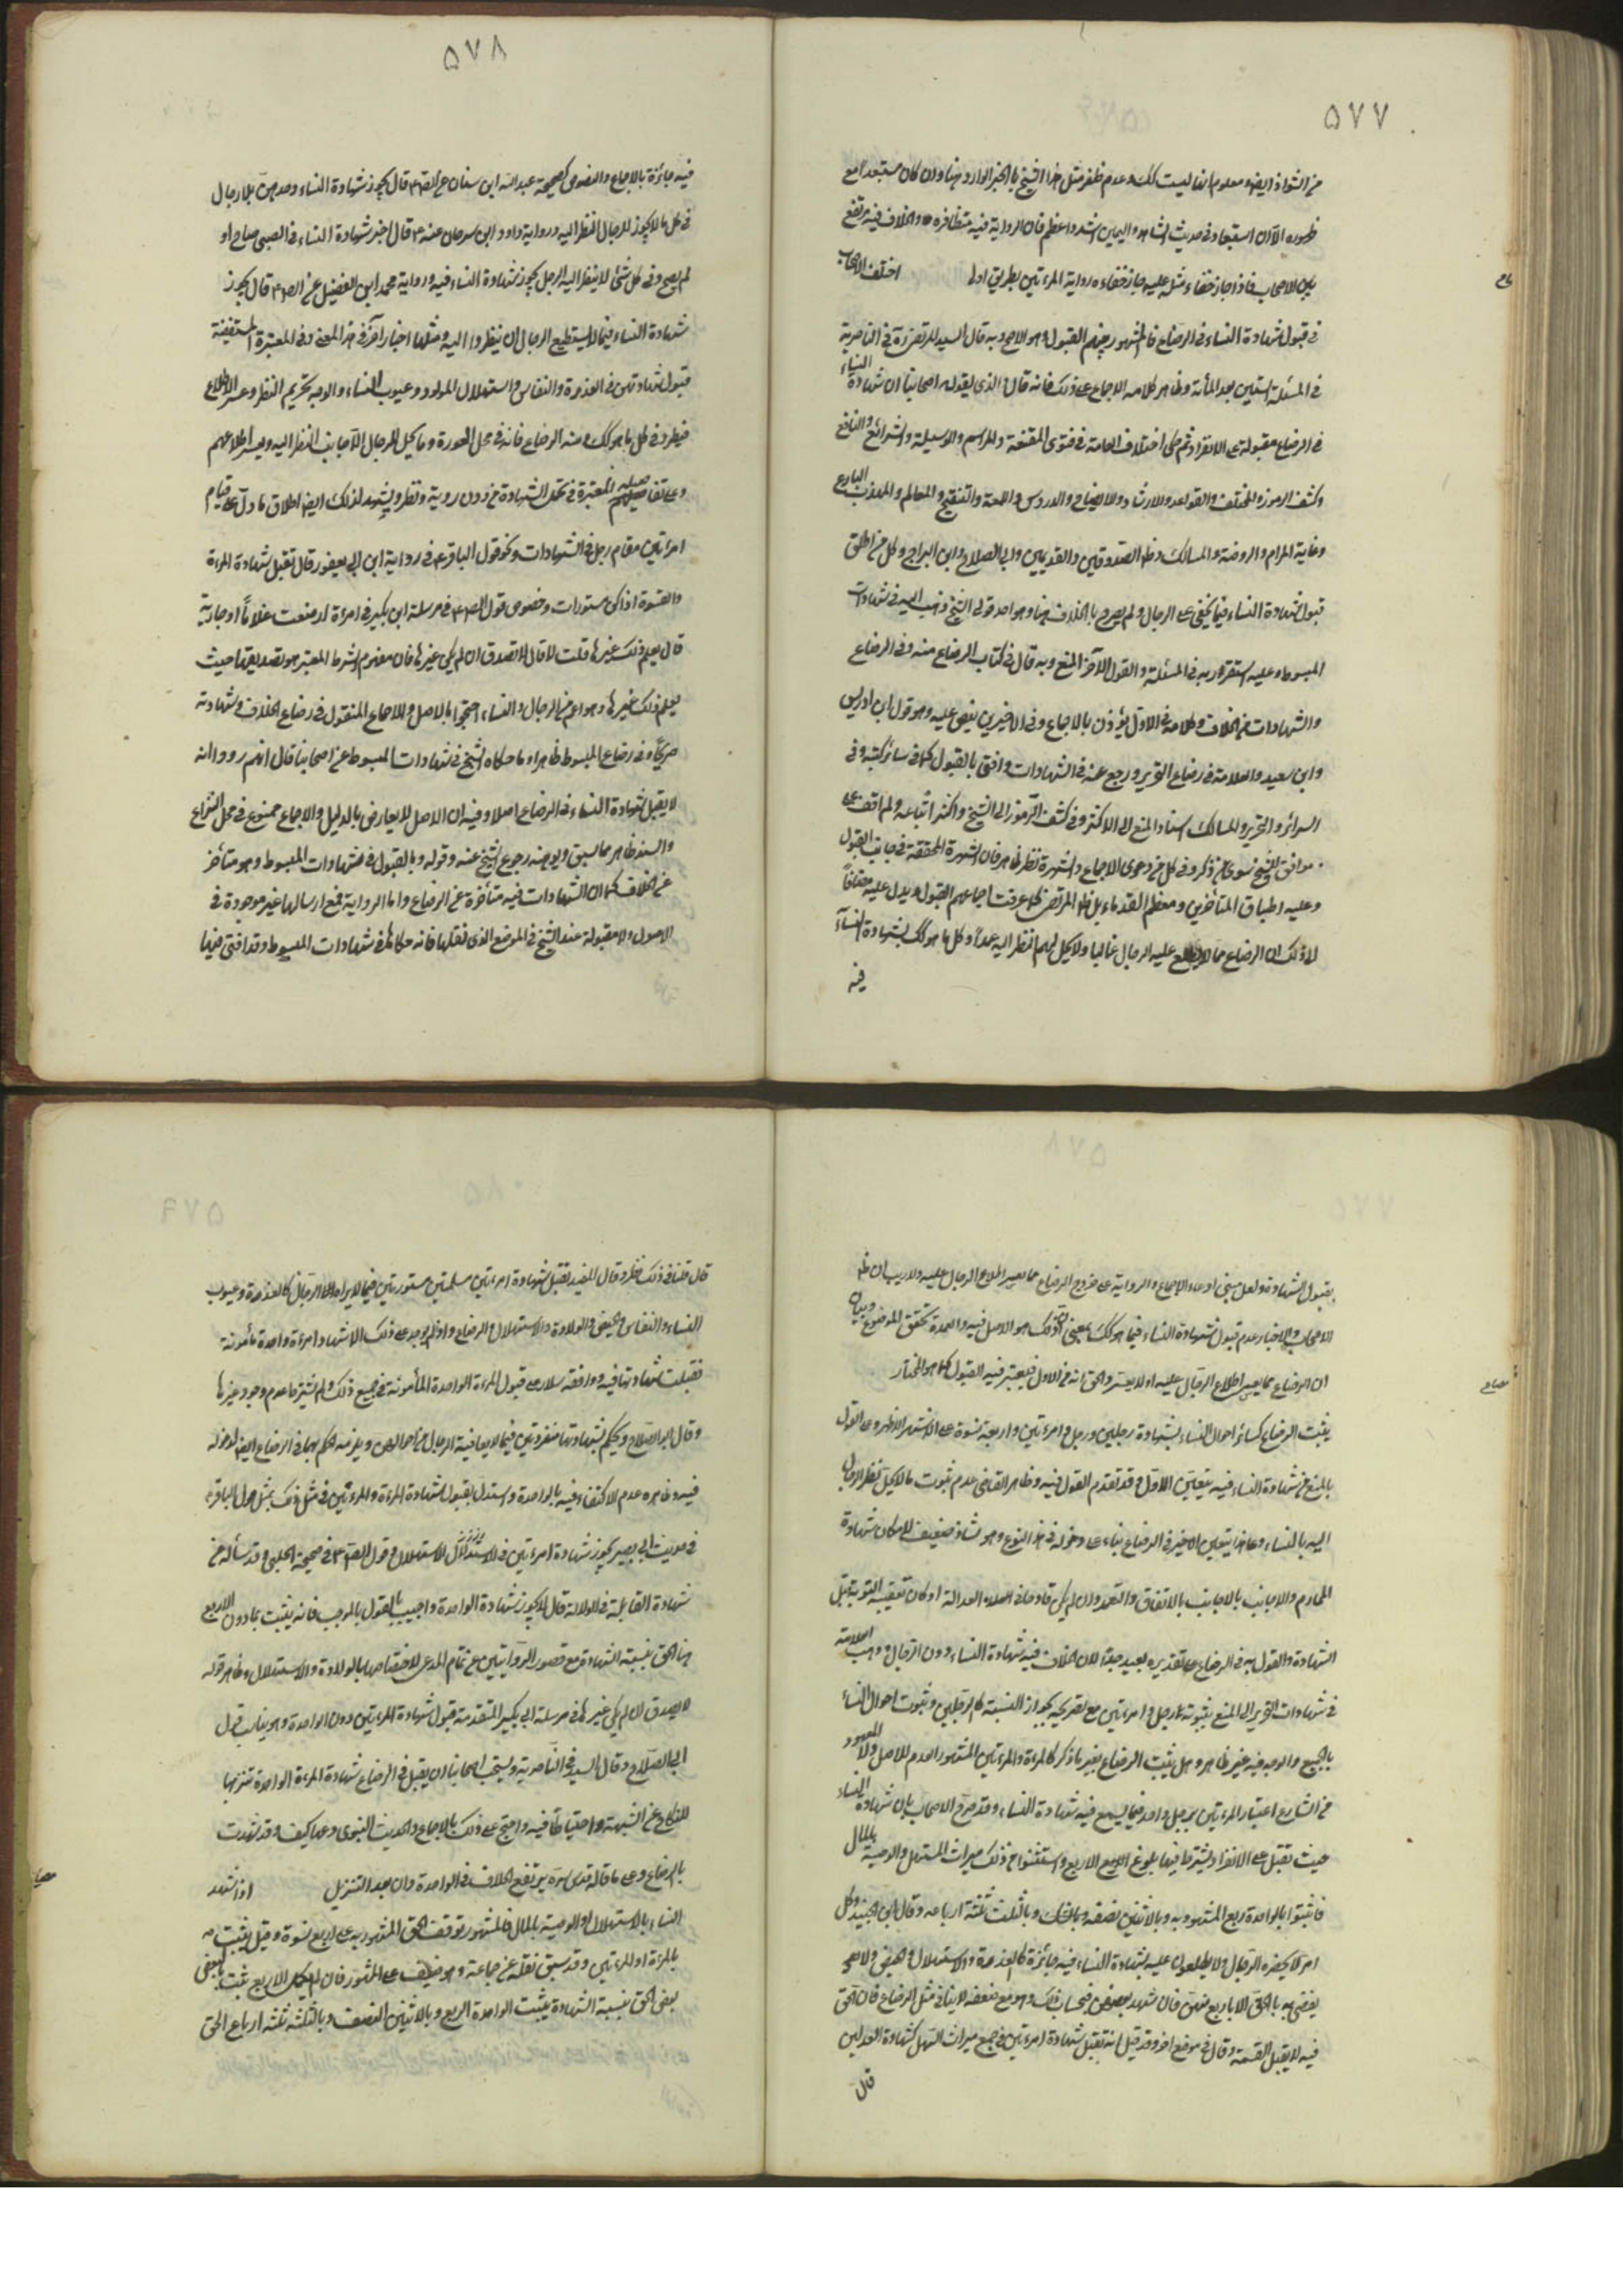 ٥٧٧
من الشواذ ايضا ومعلوم انها ليست كك وعدم ظفر مثل هذا الشيخ بالخبر الوارد فيها وان كان مستبعدا مع
ظهوره الا ان استبعاد في حديث الشاهد واليمين اشد واعظم فان الرواية فيه متظافرة والخلاف فيه مرتفع
بين الاصحاب فاذا جاز خفاء مثله عليه جاز خفاء رواية المرءتين بطريق اولى اختلف الاصحاب
في قبول شهادة النساء في الرضاع فالمشهور بينهم القبول وهو الاصح وبه قال السيد المرتضى ره في الناصرية
في المسئلة الستين بعد المأة وظاهر كلامه الاجماع على ذلك فانه قال الذي يقوله اصحابنا ان شهادة النساء
في الرضاع مقبولة على الانفراد ثم حكى اختلاف العامة وفتوى المقنعة والمراسم والوسيلة والشرائع والنافع
وكشف الرموز والمختلف والقواعد والارشاد والايضاح والدروس واللمعة والتنقيح والمعالم والمهذب البارع
وغاية المرام والروضة والمسالك وظ الصدوقين والقديمين وابي الصلاح وابن البراج وكل من اطلق
قبول شهادة النساء فيما يخفى على الرجال ولم يصرح بالخلاف هنا وهو احد قولي الشيخ ذهب اليه في شهادات
المبسوط وعليه استقر رايه في المسئلة والقول الآخر المنع وبه قال في كتاب الرضاع منه وفي الرضاع
والشهادات من الخلاف وكلامه في الاول يؤذن بالاجماع وفي الاخيرين نص عليه وهو قول ابن ادريس
وابن سعيد والعلامة في رضاع التحرير ورجع عنه في الشهادات وافتى بالقبول كما في سائر كتبه وفي
السرائر والتحرير والمسالك اسناد المنع الى الاكثر وفي كشف الرموز الى الشيخ واكثر اتباعه ولم اقف على
موافق للشيخ سوى من ذكر وفي كل من دعوى الاجماع والشهرة نظر ظاهر فان الشهرة المحققة في جانب القبول
وعليه اطباق المتأخرين ومعظم القدماء بل ظ المرتضى كما عرفت اجماعهم القبول ويدل عليه مضافا
لذلك ان الرضاع مما لا يطلع عليه الرجال غالبا ولا يحل لهم النظر اليه عمدا وكل ما هو كك فشهادة النساء
فيه
٥٧٨
فيه جائزة بالاجماع والنصوص كصحيحة عبد الله ابن سنان عن الص ع قال تجوز شهادة النساء وحدهن بلا رجال
في كل ما لا يجوز للرجال النظر اليه ورواية داود ابن سرحان عنه ع قال اجيز شهادة النساء في الصبي صاح او
لم يصح وفي كل شئ لا ينظر اليه الرجل تجوز شهادة النساء فيه ورواية محمد ابن الفضيل عن الرضا ع قال تجوز
شهادة النساء فيما لا يستطيع الرجال ان ينظروا اليه ومثلها اخبار اخر في هذا المعنى وفي المعتبرة المستفيضة
قبول شهادتهن في العذرة والنفاس واستهلال المولود وعيوب النساء والوجه تحريم النظر وعسر الاطلاع
فيطرد في كل ما هو كك ومنه الرضاع فانه في محل العورة وما يحل للرجال الاجانب النظر اليه ويعسر اطلاعهم
على تفاصيله المعتبرة في تحمل الشهادة من دون روية ونظر ويشهد لذلك ايضا اطلاق ما دل على قيام
امرءتين مقام رجل في الشهادات ونحو قول الباقر ع في رواية ابن ابي يعفور قال تقبل شهادة المرءة
والنسوة اذا كن مستورات وخصوص قول الص ع في مرسلة ابن بكير في امرءة ارضعت غلاما او جارية
قال يعلم ذلك غيرها قلت لا قال لا تصدق ان لم يكن غيرها فان مفهوم الشرط المعتبر هو تصديقها حيث
يعلم ذلك غيرها وهو اعم من الرجال والنساء احتجوا بالاصل والاجماع المنقول في رضاع الخلاف وشهاداته
صريحا وفي رضاع المبسوط ظاهرا وما حكاه الشيخ في شهادات المبسوط عن اصحابنا قال انهم رووا انه
لا يقبل شهادة النساء في الرضاع اصلا وفيه ان الاصل لا يعارض بالدليل والاجماع ممنوع في محل النزاع
والسند ظاهر مما سبق ويوهنه رجوع الشيخ عنه وقوله بالقبول في شهادات المبسوط وهو متأخر
عن الخلاف كما ان الشهادات فيه متأخرة عن الرضاع واما الرواية فمع ارسالها غير موجودة في
الاصول ولا مقبولة عند الشيخ في الموضع الذي نقلها فانه حكاها في شهادات المبسوط وقد افتى فيها
بقبول الشهادة ولعل مبنى ادعاء الاجماع والرواية على خروج الرضاع مما يعسر اطلاع الرجال عليه ولا ريب ان ظ
الاصحاب والاخبار عدم قبول شهادة النساء فيما هو كك بمعنى ان ذلك هو الاصل فيه والعمدة تحقق الموضوع وبيان
ان الرضاع مما يعسر اطلاع الرجال عليه او لا يعسر والحق انه من الاول فيعتبر فيه القبول كما هو المختار
يثبت الرضاع كسائر احوال النساء بشهادة رجلين ورجل وامرءتين واربع نسوة على الاشهر الاظهر وعلى القول
بالمنع من شهادة النساء فيه يتعين الاول وقد تقدم القول فيه وظاهر القاضي عدم ثبوت ما لا يحل نظر الرجال
اليه بالنساء وعلى هذا يتعين الاخير في الرضاع بناء على دخوله في هذا النوع وهو شاذ ضعيف لامكان شهادة
المحارم والاجانب بالاتفاق والتعمد وان لم يكن قادحا في العدالة او كان تعقبه التوبة قبل
الشهادة والقول به في الرضاع على تقديره بعيد جدا لان الخلاف فيه شهادة النساء دون الرجال وذهب العلامة
في شهادات التحرير الى المنع بثبوته برجل وامرءتين مع تصريحه بجواز النسبة كالرجلين وثبوت احوال النساء
بالجميع والوجه فيه غير ظاهر وهل يثبت الرضاع بغير ما ذكر كالمرءة والمرءتين المشهور العدم للاصل ولان المعهود
من الشارع اعتبار المرءتين برجل واحد فيما يسمع فيه شهادة النساء وقد صرح الاصحاب بان شهادة النساء
حيث تقبل على الانفراد يشترط فيها بلوغ الاربع واستثنوا من ذلك ميراث المستهل والوصية بالمال
فاثبتوا بالواحدة ربع المشهود به وبالاثنتين نصفه وبالثلث ثلثة ارباعه وقال ابن الجنيد وكل
امر لا يحضره الرجال ولا يطلعون عليه فشهادة النساء فيه جائزة كالعذرة والاستهلال والحيض ولا
يقضى به بالحق الا باربع منهن فان شهد بعضهن فبحساب ذلك وهو مع ضعفه لا ينافي في مثل الرضاع فان الحق
فيه لا يقبل القسمة وقال في موضع اخر وقد قيل انه تقبل شهادة امرءتين في جميع ميراث المستهل كشهادة العدلين
قال
٥٧٩
قال قلنا في ذلك نظر وقال المفيد تقبل شهادة امرءتين مسلمتين مستورتين فيما لا يراه الرجال كالعذرة وعيوب
النساء والنفاس والحيض والولادة والاستهلال والرضاع واذا لم يوجد على ذلك الا شهادة امرءة واحدة مأمونة
قبلت شهادتها فيه ووافقه سلار على قبول المرءة الواحدة المأمونة في جميع ذلك ولم يشترط عدم وجود غيرها
وقال ابو الصلاح ويحكم بشهادتهما منفردتين فيما لا يعاينه الرجال من احوالهن ويلزمه الحكم بهما في الرضاع ايضا لدخوله
فيه وظاهره عدم الاكتفاء فيه بالواحدة واستدل بقبول شهادة المرءة والمرءتين في مثل ذلك بمثل قول الباقر ع
في حديث ابي بصير تجوز شهادة امرءتين في الاستهلال وقول الص ع في صحيحة الحلبي وقد سأله عن
شهادة القابلة في الولادة قال تجوز شهادة الواحدة واجيب بالقول بالموجب فانه يثبت بما دون الاربع
من الحق بنسبة الشهادة مع قصور الروايتين عن تمام المدعى لاختصاصهما بالولادة والاستهلال وظاهر قوله
لا يصدق ان لم يكن غيرها في مرسلة ابن بكير المتقدمة قبول شهادة المرءتين دون الواحدة وهو يناسب قول
ابي الصلاح وقال السيد في الناصرية ويستحب اصحابنا ان يقبل في الرضاع شهادة المرءة الواحدة تنزيها
للنكاح عن الشبهة واحتياطا فيه واحتج على ذلك بالاجماع والحديث النبوي دعها كيف وقد شهدت
بالرضاع وعلى ما قاله قدس سره يرتفع الخلاف في الواحدة وان بعد التنزيل اذا شهد
النساء بالاستهلال او الوصية بالمال فالمشهور توقف الحق المشهود به على اربع نسوة وقيل يثبت
بالمرءة او المرءتين وقد سبق نقله عن جماعة وهو ضعيف على المشهور فان لم يكمل الاربع يثبت بالبعض
بعض الحق بنسبة الشهادة يثبت الواحدة الربع وبالاثنتين النصف وبالثلثة ثلثة ارباع الحق